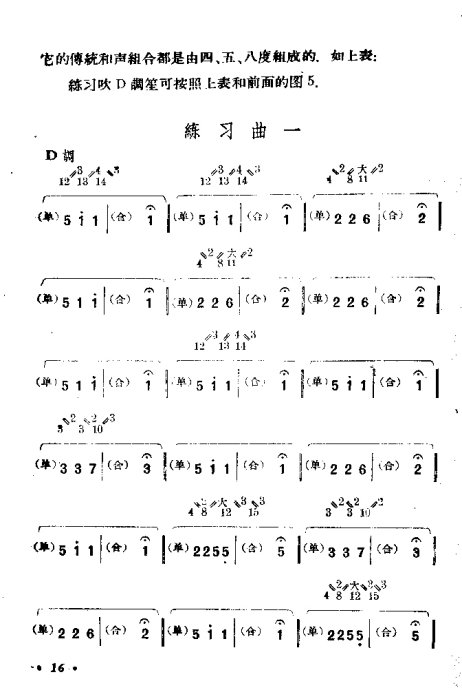 它的傳統和声組合都是由四、五、八度組成的. 如上表:
練习吹 D 調笙可按照上表和前面的图 5.
練 习 曲 一
D 調
3 4 3 3 4 3 2 大 2
12 13 14 12 13 14 4 8 11
(单) 5 1 1 (合) 1 (单) 5 1 1 (合) 1 (单) 2 2 6 (合) 2
2 大 2
4 8 11
(单) 5 1 1 (合) 1 (单) 2 2 6 (合) 2 (单) 2 2 6 (合) 2
3 4 3
12 13 14
(单) 5 1 1 (合) 1 (单) 5 1 1 (合) 1 (单) 5 1 1 (合) 1
2 2 3
3 3 10
(单) 3 3 7 (合) 3 (单) 5 1 1 (合) 1 (单) 2 2 6 (合) 2
2 大 3 3 2 2 2
4 8 12 15 3 3 10
(单) 5 1 1 (合) 1 (单) 2 2 5 5 (合) 5 (单) 3 3 7 (合) 3
2 大 3 3
4 8 12 15
(单) 2 2 6 (合) 2 (单) 5 1 1 (合) 1 (单) 2 2 5 5 (合) 5
• 16 •